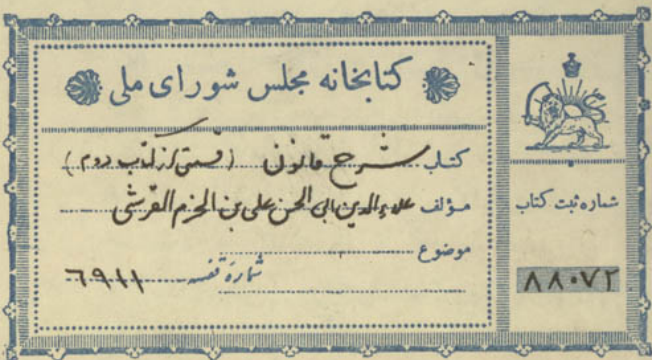 کتابخانه مجلس شورای ملی
کتاب شرح قانون (قسمتی از کتاب دوم)
مؤلف علاء‌الدین ابی الحسن علی بن الحزم القرشی
موضوع
شمارهٔ قفسه ۶۹۱۱
شماره ثبت کتاب
۸۸۰۷۲